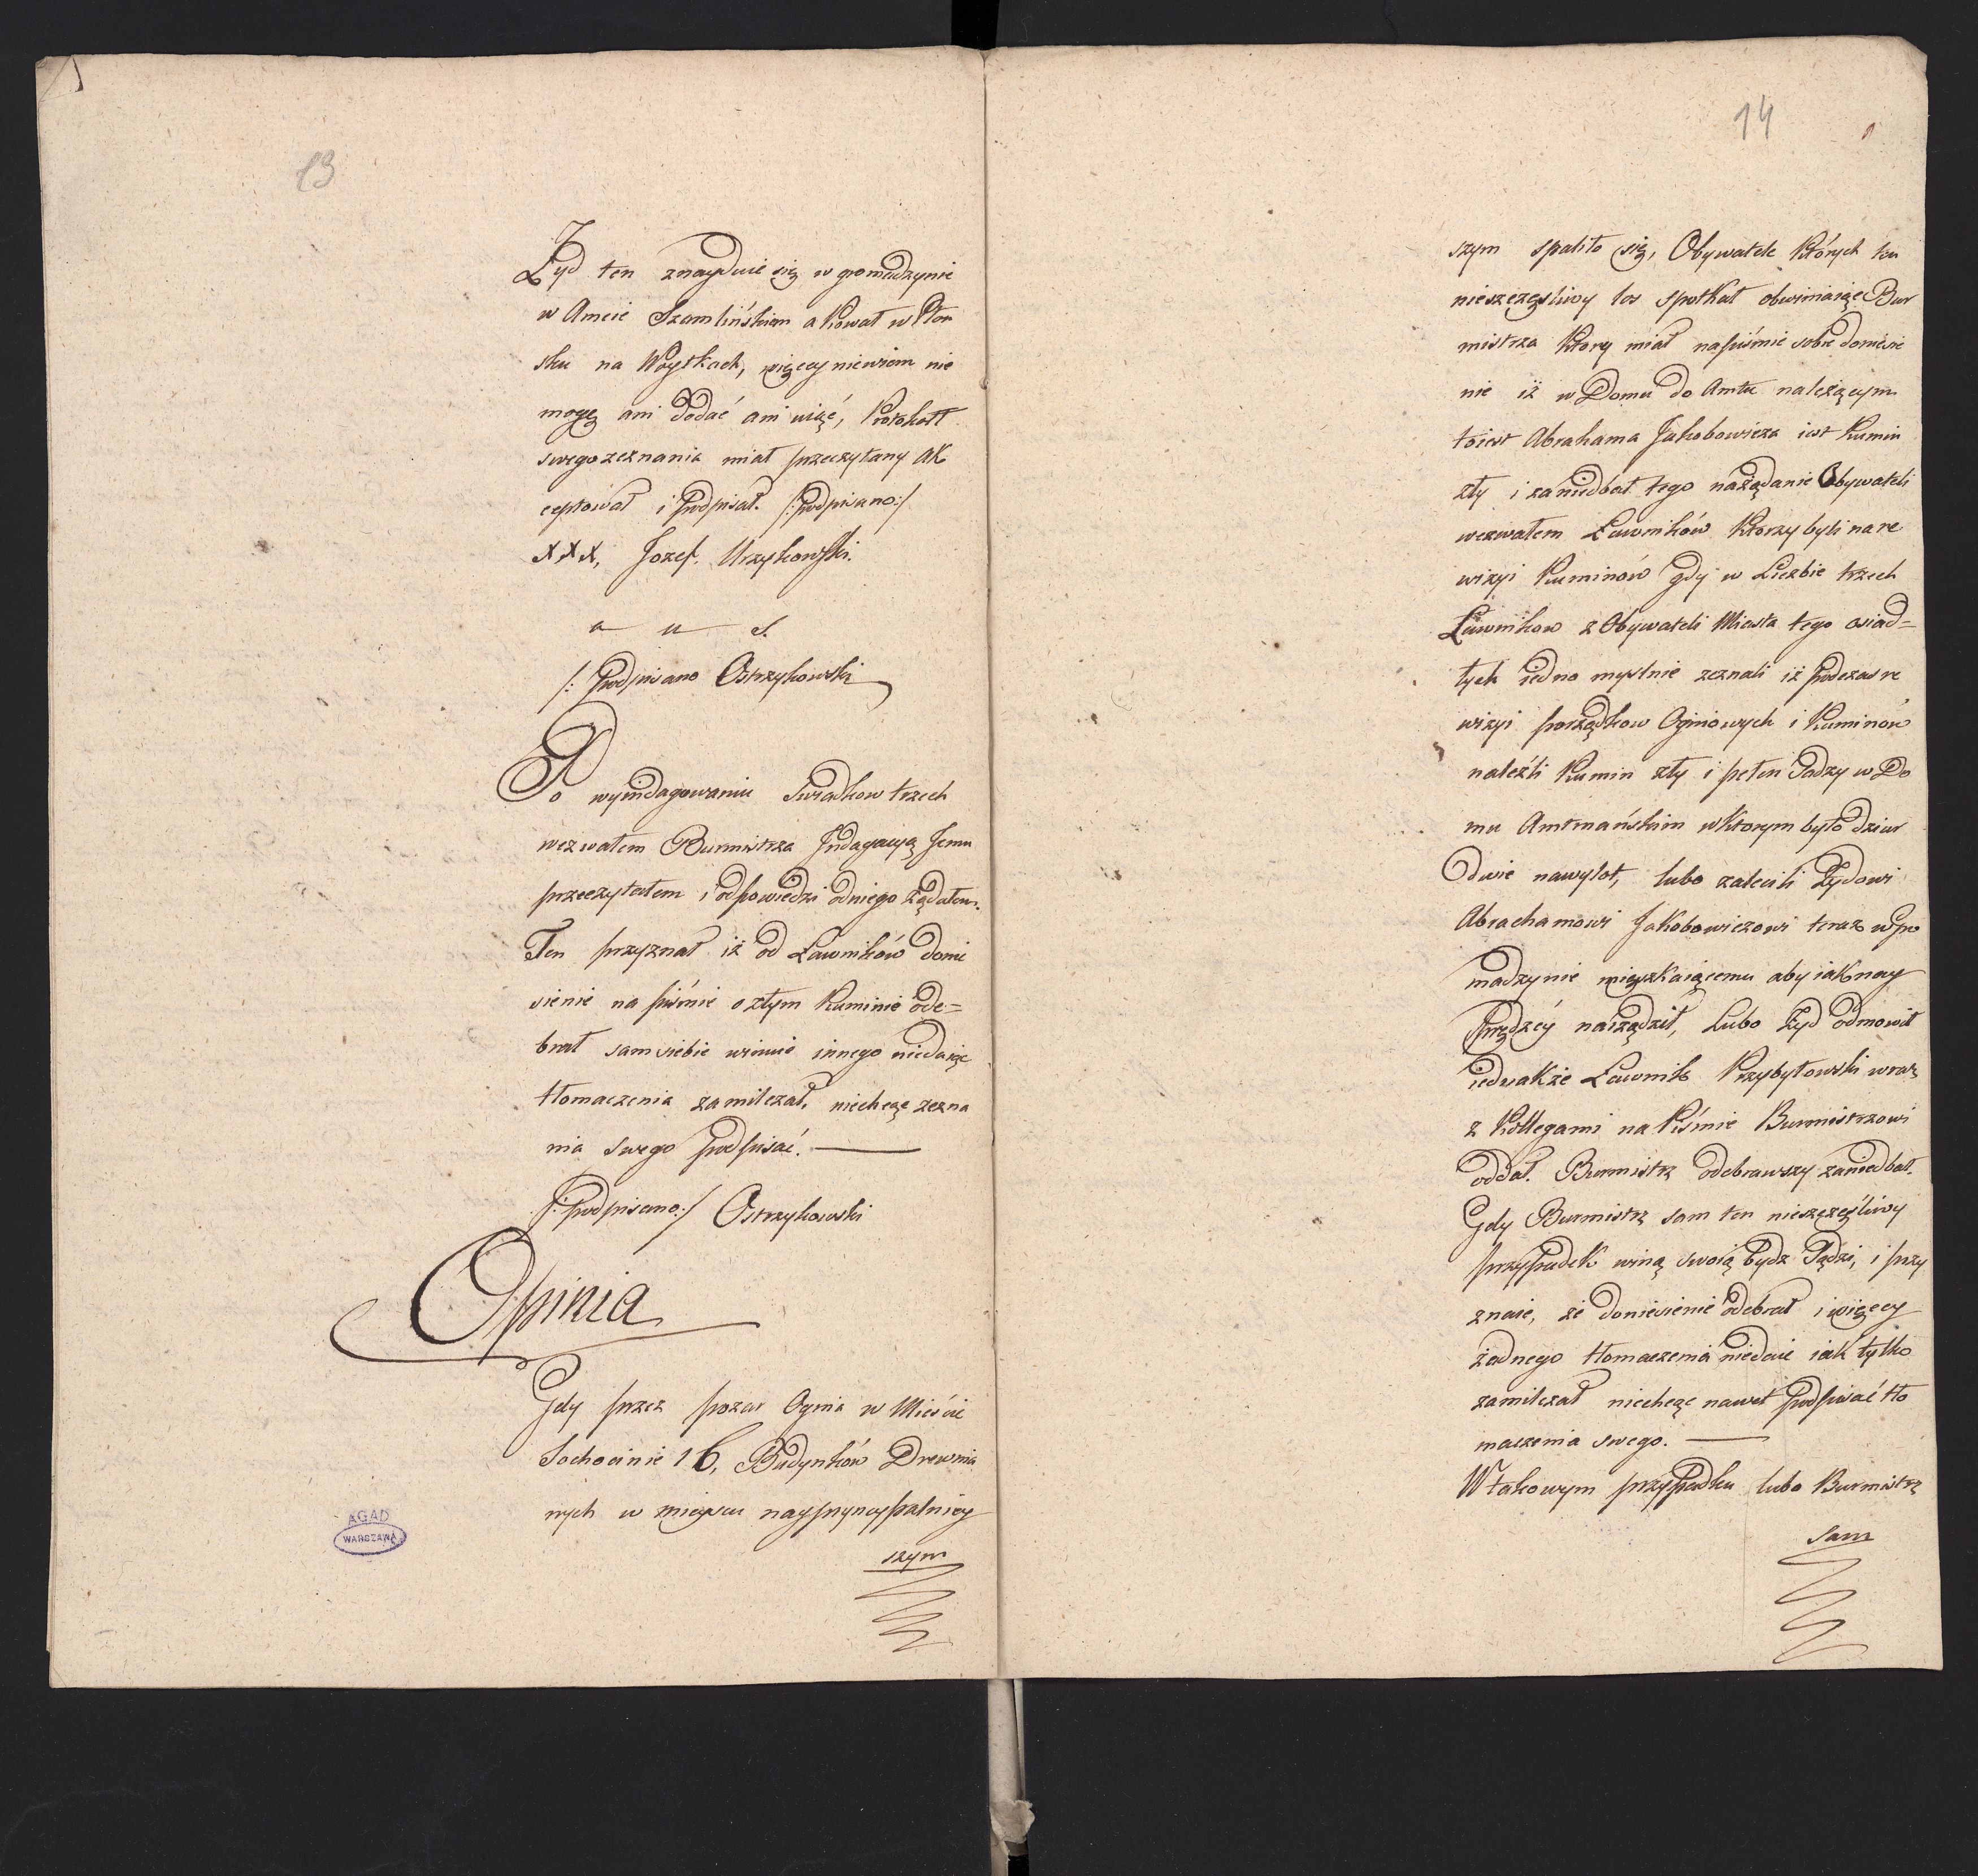 13
Żyd ten znayduie się w gromadzynie
w Amcie Szamlińskiem a Kował w Płon
sku na Woytkach, więcey niewiem nie
mogę ani dodać ani uiąć, Protokułł
swego zeznania miał przeczytany ak
ceptował i Podpisał. /:Podpisano:/
XXX, Jozef. Urzykowski.
a u s.
/: Podpisano Ostrzykowski
Po wyindagowaniu Swiadkow trzech
wezwałem Burmistrza Indagacyą Jemu
przeczytałem i odpowiedzi odniego żądałem.
Ten przyznał iż od Ławników donie
sienie na piśmie o złym Kuminie ode=
brał sam siebie winuie innego niedaiąc
tłomaczenia zamilczał, niechcąc zezna
nia swego podpisać.
/:podpisano:/ Ostrzykowski
Opinia
Gdy przez pozar Ognia w Mieście
Sochocinie 16, Budynków Drewnia
nych w mieyscu naypryncypalniey
szym
AGAD
WARSZAWA
14
szym spaliło się, Obywatele których ten
nieszczęśliwy los spotkał obwiniaiąc Bur
mistrza ktory miał napiśmie sobie doniesie
nie iż w Domu do Amtu należącym
toiest Abrahama Jakobowicza iest kumin
zły i zaniedbał tego nażądanie Obywateli
wezwałem Ławników ktorzy byli na re
wizyi Kuminów gdy w Liczbie trzech
Ławnikow z Obywateli Miasta tego osiad=
łych iedno myślnie zeznali iż podczas re
wizyi porządkow Ogniowych i Kuminów
naleźli Kumin zły i pełen Sadzy w Do
mu Amtmańskim wktorym było dziur
dwie nawylot, lubo zalecili Żydowi
Abrachamowi Jakobowiczowi teraz w gro
madzynie mieszkaiącemu aby iaknay
prędzéy narządził, Lubo Żyd odmowił
iednakże Ławnik Przybyłowski wraz
z Kollegami na Piśmie Burmistrzowi
oddał. Burmistrz odebrawszy zaniedbał.
Gdy Burmistrz sam ten nieszczęśliwy
przypadek winą swoią bydz Sądzi, i przy
znaie, że doniesienie odebrał i więcey
żadnego tłomaczenia niedaie iak tylko
zamilczał niechcąc nawet podpisać tło
maczenia swego.
W takowym przypadku lubo Burmistrz
sam